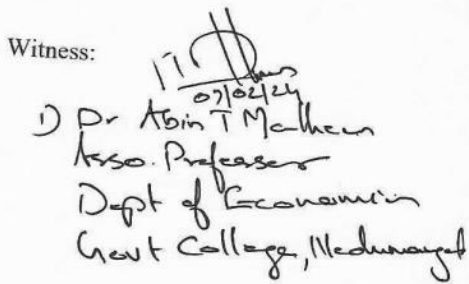 Witness:
07/02/24
1) Dr Abin T Mathew
Asso. Professor
Dept of Economics
Govt College, Nedumangad